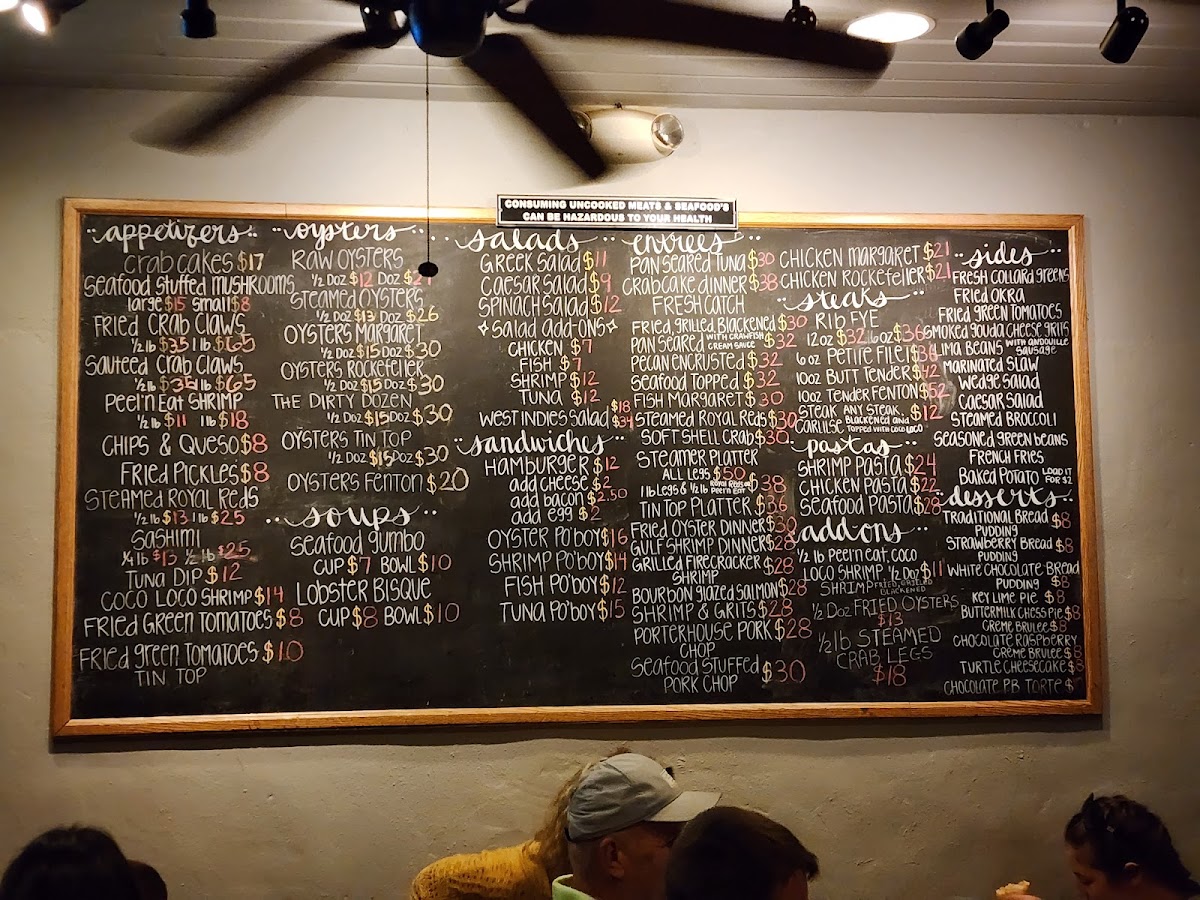 CONSUMING UNCOOKED MEATS & SEAFOOD'S
CAN BE HAZARDOUS TO YOUR HEALTH
appetizers
crab cakes $17
seafood stuffed mushrooms
large $15 small $8
Fried Crab Claws
½ lb $35 1 lb $65
Sauteed Crab Claws
½ lb $35 1 lb $65
Peel n Eat Shrimp
½ lb $11 1 lb $18
Chips & Queso $8
Fried Pickles $8
Steamed Royal Reds
½ lb $13 1 lb $25
Sashimi
¼ lb $15 ½ lb $25
Tuna Dip $12
Coco Loco Shrimp $14
Fried Green Tomatoes $8
Fried green Tomatoes $10
Tin Top
oysters
Raw Oysters
½ Doz $12 Doz
Steamed Oysters
½ Doz $13 Doz $26
Oysters Margaret
½ Doz $15 Doz $30
Oysters Rockefeller
½ Doz $15 Doz $30
The Dirty Dozen
½ Doz $15 Doz $30
Oysters Tin Top
½ Doz $15 Doz $30
Oysters Fenton $20
soups
Seafood Gumbo
Cup $7 Bowl $10
Lobster Bisque
Cup $8 Bowl $10
salads
Greek Salad $11
Caesar Salad $9
Spinach Salad $12
Salad Add-ons
Chicken $7
Fish $7
Shrimp $12
Tuna $12
West Indies Salad $18 $34
sandwiches
Hamburger $12
add cheese $2
add bacon $2.50
add egg $2
Oyster Po'boy $16
Shrimp Po'boy $14
Fish Po'boy $12
Tuna Po'boy $15
entrees
Pan Seared Tuna $30
Crabcake dinner $38
Fresh Catch
Fried, Grilled, Blackened $30
Pan Seared with crawfish cream sauce $32
Pecan Encrusted $32
Seafood Topped $32
Fish Margaret $30
Steamed Royal Reds $30
Soft Shell Crab $30
Steamer Platter
All Legs $50
1 lb Legs & ½ lb Royal Reds or Peel n Eat $38
Tin Top Platter $36
Fried Oyster Dinner $30
Gulf Shrimp Dinner $28
Grilled Firecracker $28
Shrimp
Bourbon Glazed Salmon $28
Shrimp & Grits $28
Porterhouse Pork $28
Chop
Seafood Stuffed $30
Pork Chop
Chicken Margaret $21
Chicken Rockefeller $21
steaks
Rib Eye
12 oz $32 16 oz $36
6 oz Petite Filet
10oz Butt Tender $42
10oz Tender Fenton $52
Steak Carlise Any Steak, Blackened and Topped with Coco Loco $12
pastas
Shrimp Pasta $24
Chicken Pasta $22
Seafood Pasta $28
add-ons
½ lb Peel n eat, coco
loco shrimp ½ Doz $11
Shrimp Fried, Grilled Blackened
½ Doz Fried Oysters
$13
½ lb Steamed
Crab Legs
$18
sides
Fresh Collard Greens
Fried Okra
Fried Green Tomatoes
Smoked Gouda Cheese Grits
Lima Beans with Andouille Sausage
Marinated Slaw
Wedge Salad
Caesar Salad
Steamed Broccoli
Seasoned Green Beans
French Fries
Baked Potato Load it for $2
desserts
Traditional Bread $8
Pudding
Strawberry Bread $8
Pudding
White Chocolate Bread
Pudding $8
Key Lime Pie $8
Buttermilk Chess Pie $8
Creme Brulee $8
Chocolate Raspberry
Creme Brulee $8
Turtle Cheesecake $8
Chocolate PB Torte $